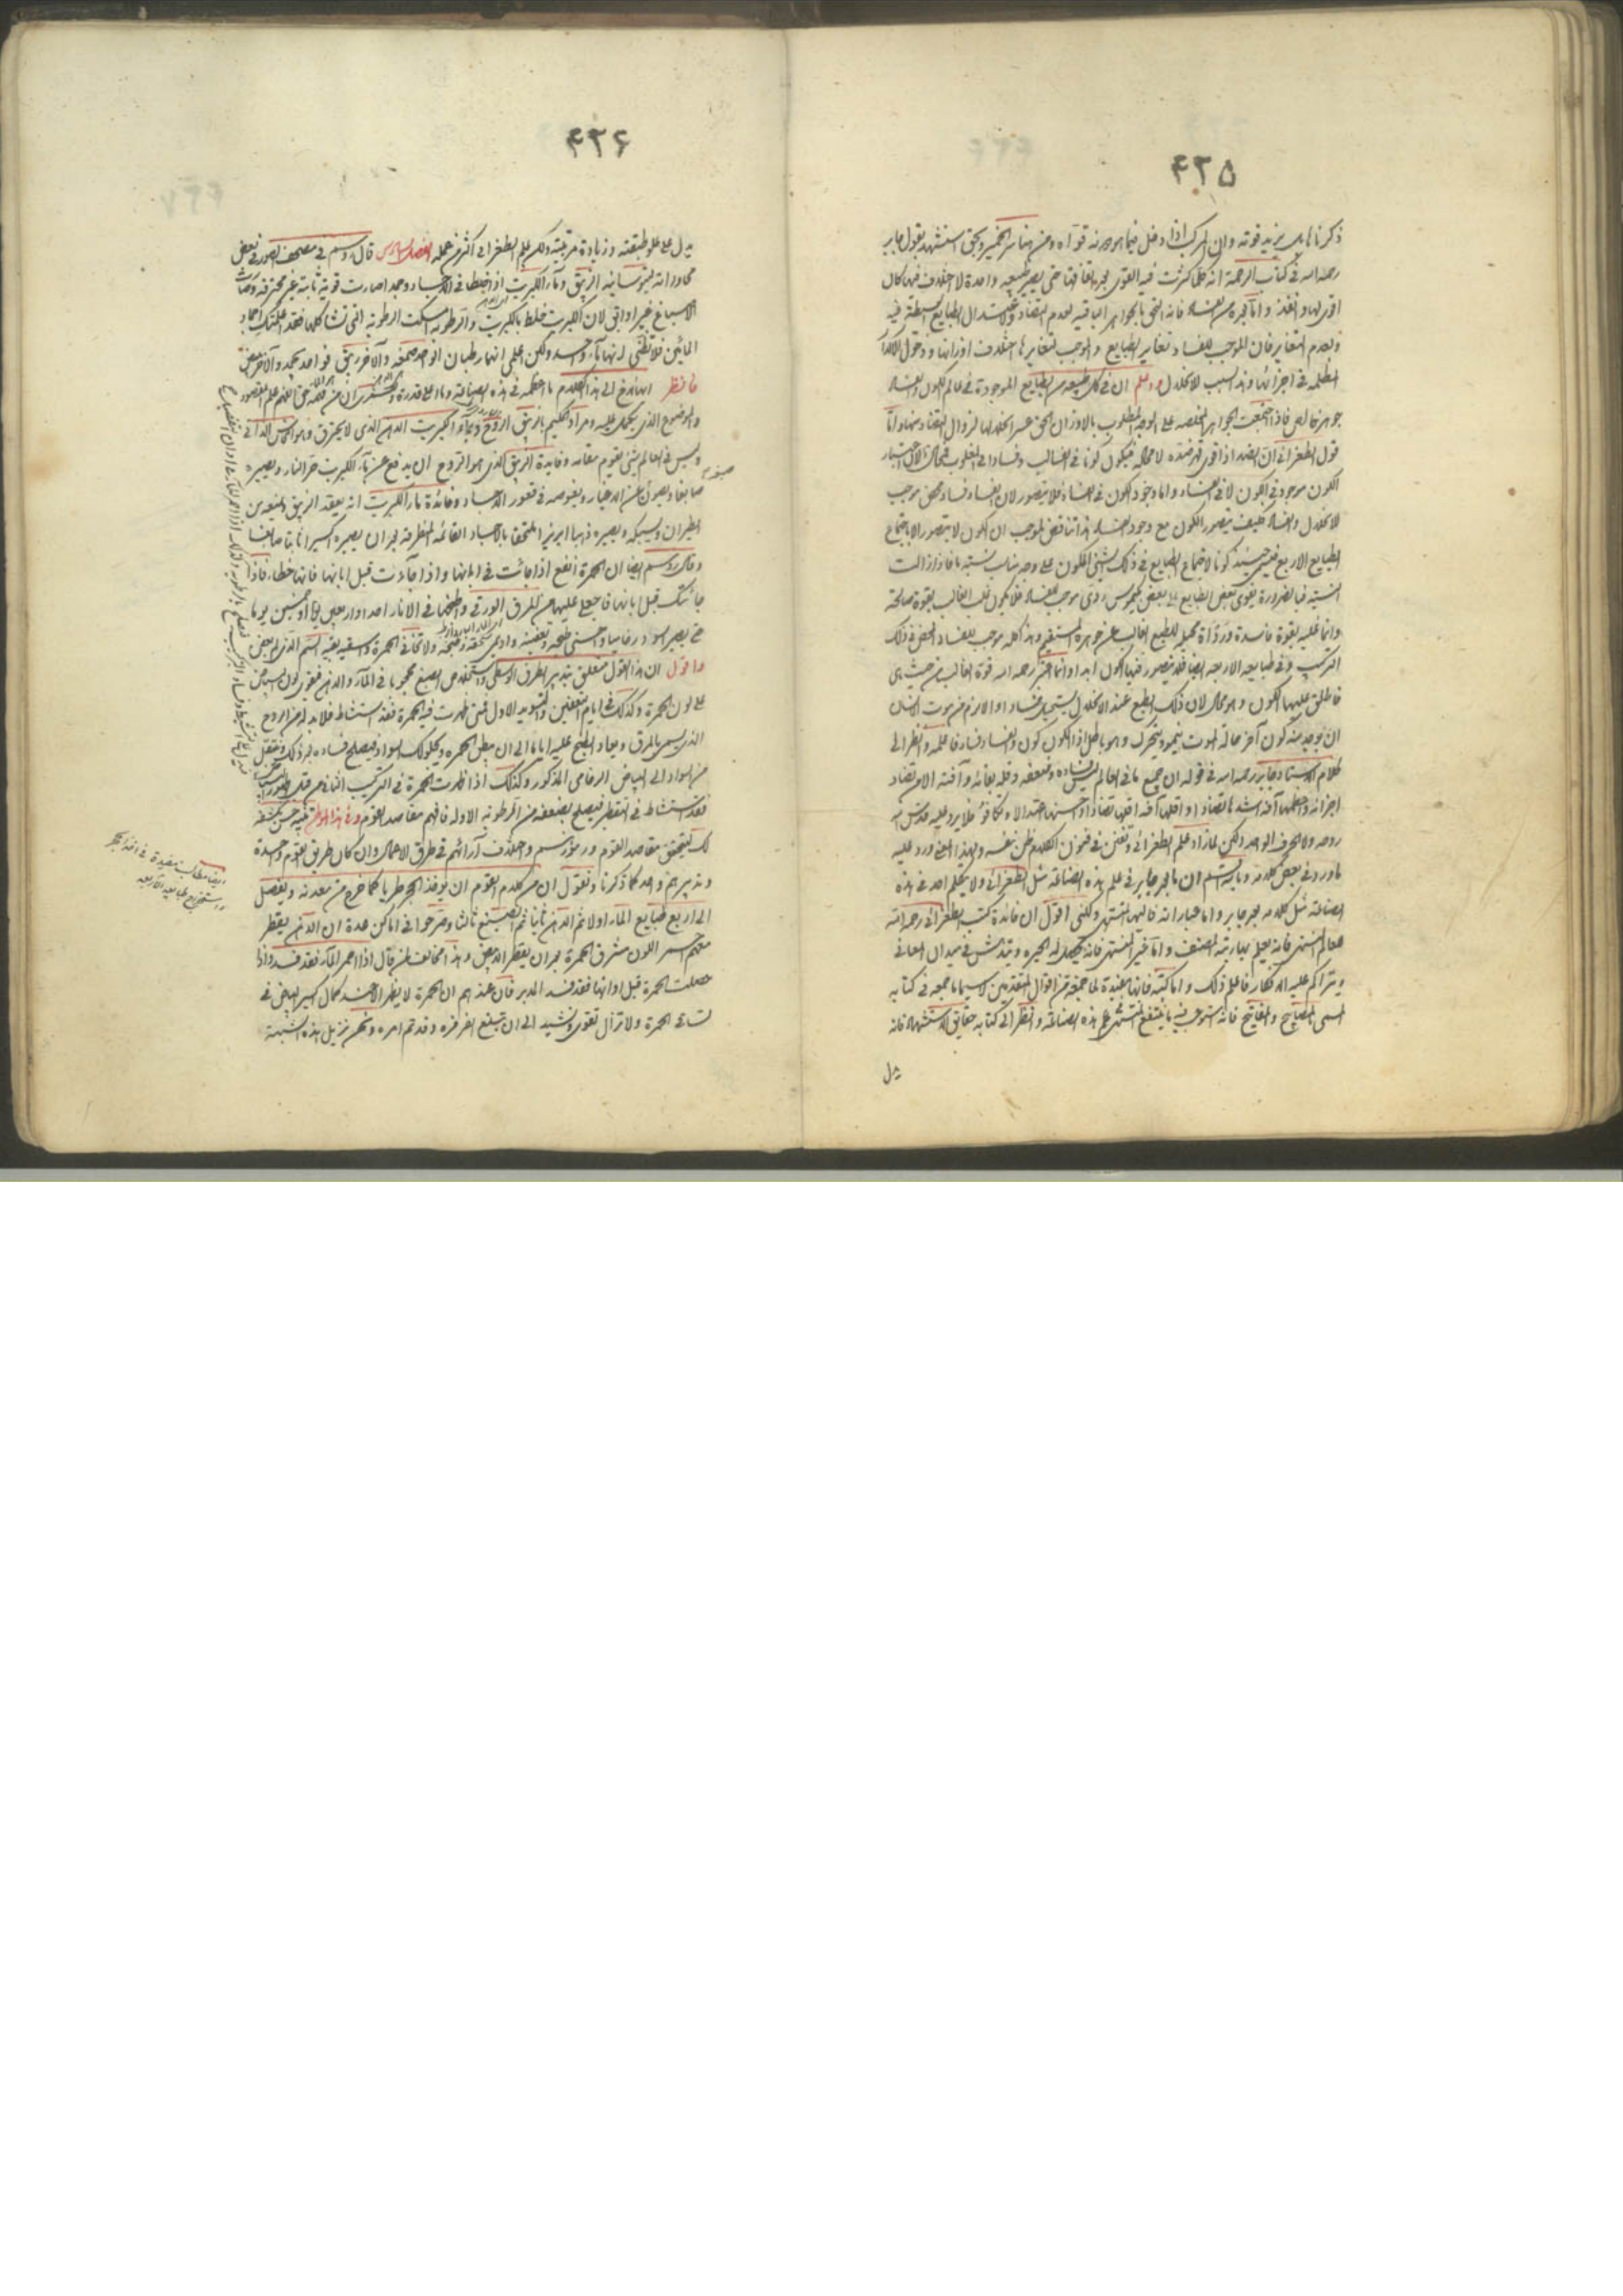 ۴۲۵
ذكرنا بل يزيد قوته وان المركب اذا دخل فيما هو جزئه قواه ومن هنا سر الخمير ويحق استشهد بقول جابر
رحمه الله في كتاب الرحمة انه كلما كثرت فيه القوى حتى يصير طبيعة واحدة لا اختلاف فيها كان
اقوى لها وانفذ واما تجرده من الفساد فانه التحق بالجواهر الباقية لعدم التضاد ولاعتدال الطبايع البسيطة فيه
ولعدم التغاير فان الموجب للفساد تغاير الطبايع والموجب لتغايرها اختلاف اوزانها ودخول الاكدار
المظلمة في اجزائها وهذا سبب الانحلال واعلم ان في كل طبيعة من الطبايع الموجودة في عالم الكون والفساد
جوهر خالص فاذا اجتمعت الجواهر المخلصة على الوجه المطلوب بالاوزان الحق عسر انحلالها لزوال التضاد منها واما
قول الطغرائي ان الضد اذا قوى قهر ضده لا محالة فيكون كونا في الغالب وفسادا في المغلوب
الكون موجود في الكون لا في الفساد واما وجود الكون في الفساد فلا يتصور لان الفساد فساد محض موجب
للانحلال والفساد فكيف يتصور الكون مع وجود الفساد هذا تناقض الموجب ان الكون لا يتصور الا باجتماع
الطبايع الاربع فيسمى حينئذ كونا لاجتماع الطبايع في ذلك الشيء المكون على وجه مناسب نسبته ما فاذا زالت
النسبة فبالضرورة يقوى بعض الطبايع على بعض موجب للفساد فلا يكون غلب الغالب بقوة صالحة
وانما غلبه بقوة فاسدة تحيل الطبع الغالب عن جوهره المستقيم وهذا كله موجب للفساد المحض في ذلك
التركيب وفي طبايعه الاربعة ايضا فلا يتصور فيها الكون ابدا وانما اغتر رحمه الله قوة الغالب من حيث هي
فاطلق عليها الكون وهو محال لان ذلك الطبع عند الانحلال يستحيل فسادا والا لزم من موت الانسان
ان يوجد منه كون آخر حالة الموت ينمو ويتحرك وهو باطل اذا الكون كون والفساد فساد فاعلمه وانظر الى
كلام الاستاد جابر رحمه الله في قوله ان جميع ما في العالم ليس فساده وضعفه وقلة بقائه وآفته الا من تضاد
اجزائه واعظمها آفة اشدها تضادا واقلها آفة اقلها تضادا واحسنها اعتدالا وتكافؤا فلا يرد عليه قدس الله
روحه ولا الحرف الواحد ولكن لما زاد علم الطغرائي وتفنن في فنون الكلام ظن نفسه ولهذا المعنى ورد عليه
ما ورد في بعض كلامه وبالجملة لم يتكلم ان بالجر جابر في علم هذه الصناعة مثل الطغرائي ولا يتكلم احد في هذه
الصناعة مثل كلامه بعد جابر واما عباراته فاليها المنتهى ولكني اقول ان فائدة كتب الطغرائي رحمه الله
للعالم المنتهي فانه يعلم بعبارته المصنف واما غير المنتهي فانه يحصل له الحيرة ويتدهش في ميدان المعاني
ويتراكم عليه الافكار فاعلم ذلك واما كتبه فانها مفيدة لما جمعه من اقوال المتقدمين لا سيما ما جمعه في كتابه
المسمى بالمصابيح والمفاتيح فانه استوعب فيه ما ينتفع المشتغل بعلم هذه الصناعة وانظر الى كتابه حقايق الاستشهاد فانه
يدل
۴۲۶
يدل على علو طبقته وزيادة مرتبته ولكن علم الطغرائي اكثر من عمله الفصل السادس قال روسم في مصحف الصور في بعض
محاوراته لثيوسابيه الزيبق ونار الكبريت اذا اختلطا في الاجساد وجمدا صارت قوية ثابتة غير محترقة وصارت
الاصباغ غير اوابق لان الكبريت خلط بالكبريت والرطوبة امسكت الرطوبة التي تشاكلها فقد علمتك اتحاد
المائين فلا تظني انها ماء واحد ولكن اعلمي انهما رطبان الواحد صمغه والآخر زيبق فواحد يجمد والآخر يبيض
فانظر ايها الاخ الى هذا الكلام ما اعظمه في هذه الصناعة وما اعلى قدره
والموضوع الذي يكمل عليه ومراد الحكيم بالزيبق الروح وبماء الكبريت الدهن الذي لا يحترق وهو النحاس الذائب
وليس في العالم شيء يقوم مقامه وفايدة الزيبق الذي هو الروح ان يدفع عن نار الكبريت حر النار ويصيره
صابغا ويصونه عن الاحبار ويغوصه في قعور الاجساد وفائدة نار الكبريت انه يعقد الزيبق ويمنعه من
الطيران ويسبكه ويصيره ذهبا ابريزا ملتحقا بالاجساد القائمة المنطرقة بعد ان يصيره اكسيرا ثابتا صابغا
وقال روسم ايضا ان الحمرة انفع اذا جائت في ابانها واذا جاءت قبل ابانها فانها خطاء فاذا
جائتك قبل ابانها فاجعل عليها من المرق الورقي واطبخها في الاثار احد واربعين يوما او خمسين يوما
حتى يصير اسود رخاميا واحسني طبخه وتعفينه وادمي سحقه وطبخه ولا تخافي الحمرة واسقيه بقية السم الذي ابيض
واقول ان هذا القول متعلق بتدبير الطرق الوسطى واستخلاص الصبغ محجوبا في الماء والدهن فيقوى لون البياض
على لون الحمرة وكذلك في ايام التعفين والتسويد الاول فمتى ظهرت فيه الحمرة فقد استشاط فلا بد له من الروح
الذي يسمى بالمرق ويعاد الطبخ عليه اياما الى ان يبطن الحمرة ويعلوك السواد فيصلح فساده بعد ذلك وينتقل
من السواد الى البياض الرخامي المذكور وكذلك اذا ظهرت الحمرة في التركيب الثاني من قبل ظهور البياض
فقد استشاط في التقطير فيصلح بضعفه من الرطوبة الاولة فافهم مقاصد القوم وفي هذا الموطن تنبيه حسن نكشفه
لك لتحقق مقاصد القوم ورموزهم واختلاف آرائهم في طرق الاعمال وان كان طريق القوم واحدة
وتدبيرهم واحد كما ذكرنا ونقول ان من كلام القوم ان يؤخذ الحجر طريا كما خرج من معدنه ويفصل
الى اربع طبايع الماء اولا ثم الدهن ثانيا ثم الصبغ ثالثا وصرحوا في اماكن عدة ان الدهن يقطر
منهم احمر اللون مشرق الحمرة بعد ان يقطر الابيض وهذا مخالف لمن قال اذا احمر الماء فقد فسد واذا
حصلت الحمرة قبل اوانها فقد فسد المدبر فان عندهم ان الحمرة لا يظهر الا عند كمال اكسير البياض في
تساعي الحمرة ولا تزال تقوى وتشيد الى ان تبلغ الفرفرة وقد تم امره ونحن نزيل هذه الشبهة
ايضا مطالب مفيدة في اخذ الحجر
واستخراج طبايعه الاربعه